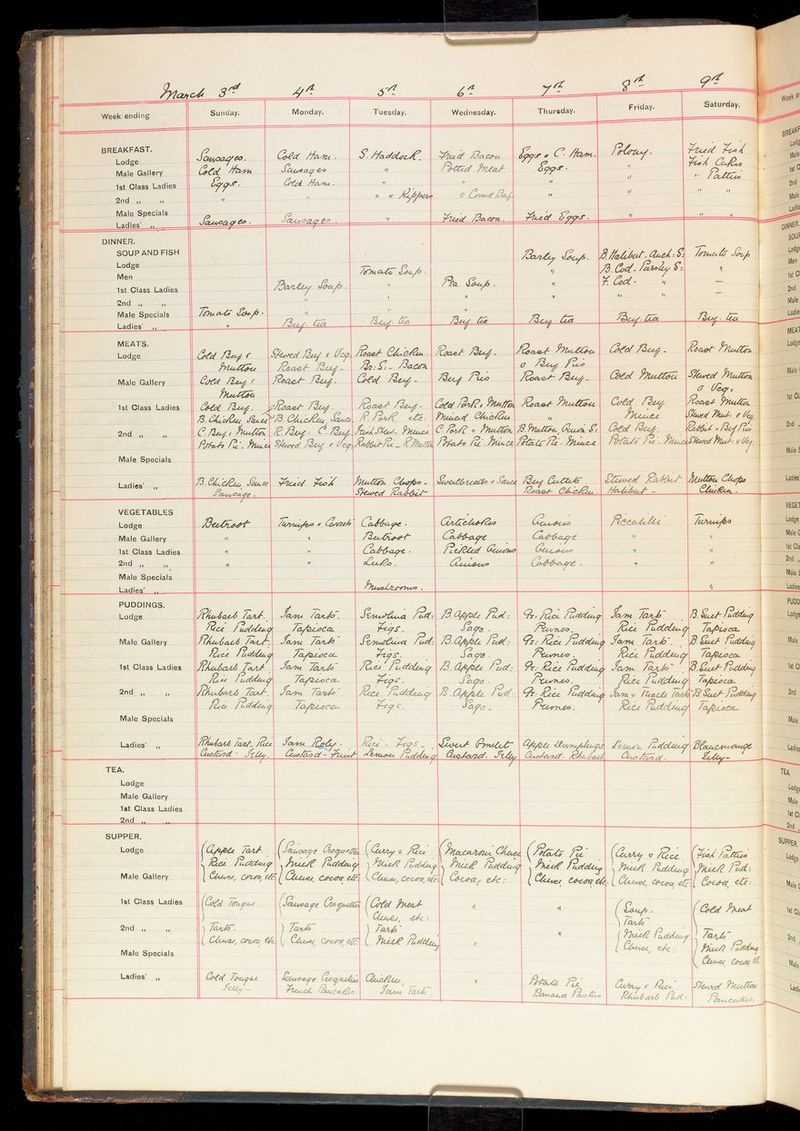 March 3rd 4th 5th 6th 7th 8th 9th
Week ending Sunday. Monday. Tuesday. Wednesday. Thursday. Friday. Saturday.
BREAKFAST.
Lodge Sausages. Cold Ham. S. Haddock. Fried Bacon Eggs & C. Ham. Polony. Fried Fish
Male Gallery Cold Ham Sausages " Potted Meat Eggs. " Fish Cakes
1st Class Ladies Eggs. Cold Ham. " " " " " Patties
2nd " " " " " & Kippers " " " "
Male Specials
Ladies' " Sausages. Sausages. " Fried Bacon. Fried Eggs. " " "
DINNER.
SOUP AND FISH Barley Soup. B. Halibut. Anch: S: Tomato Soup
Lodge Tomato Soup. " B. Cod. Parsley S: "
Men Pea Soup. " F. Cod. "
1st Class Ladies Barley Soup. " " " —
2nd " " " " " " " " —
Male Specials Tomato Soup. "
Ladies' " " Beef tea Beef tea Beef tea Beef tea Beef tea Beef tea
MEATS.
Lodge Cold Beef & Stewed Beef & Veg: Roast Chicken. Roast Beef. Roast Mutton Cold Beef. Roast Mutton
Mutton Roast Beef. Br: S: Bacon & Beef Pies
Male Gallery Cold Beef & Roast Beef. Cold Beef. Beef Pies Roast Beef. Cold Mutton Stewed Mutton
Mutton & Veg:
1st Class Ladies Cold Beef. Roast Beef. Roast Beef. Cold Pork. Mutton Roast Mutton Cold Beef Roast Mutton
B. Chicken Sauce B. Chicken, Sauce R. Pork etc: Minced Chicken " Mince Stewed Mut: & Veg.
2nd " " C. Beef & Mutton R. Beef. C. Beef. C. Pork & Mutton B. Mutton, Onion S: Cold Beef Rabbit & Beef Pies
Potato Pie. Mince Stewed Beef & Veg. Rabbit Pie. R. Mutton Potato Pie. Mince Potato Pie. Mince Potato Pie. Mince Stewed Mutton & Veg.
Male Specials
Ladies' " B. Chicken, Sauce Fried Fish Mutton Chops. Sweetbreads & Sauce Beef Cutlets Stewed Rabbit Mutton Chops
Sausage. Stewed Rabbit Roast Chicken Halibut Chicken.
VEGETABLES
Lodge Beetroot Turnips & Carrots Cabbage. Artichokes Onions Piccalilli Turnips
Male Gallery " " Beetroot Cabbage Cabbage " "
1st Class Ladies " " Cabbage. Pickled Onions Onions " "
2nd " " " " Leeks. Onions Cabbage. " "
Male Specials
Ladies' " Mushrooms. "
PUDDINGS.
Lodge Rhubarb Tart. Jam Tarts. Semolina Pud: B. Apple Pud: Gr: Rice Pudding Jam Tarts B. Suet Pudding
Rice Pudding Tapioca Figs. Sago. Prunes. Rice Pudding Tapioca
Male Gallery Rhubarb Tart. Jam Tarts Semolina Pud: B. Apple Pud: Gr: Rice Pudding Jam Tarts B. Suet Pudding
Rice Pudding Tapioca Figs. Sago Prunes. Rice Pudding Tapioca
1st Class Ladies Rhubarb Tart Jam Tarts Rice Pudding B. Apple Pud: Gr: Rice Pudding Jam Tarts B. Suet Pudding
Rice Pudding Tapioca Figs. Sago Prunes. Rice Pudding Tapioca
2nd " " Rhubarb Tart. Jam Tarts Rice Pudding B. Apple Pud. Gr: Rice Pudding Jam & Treacle Tarts B. Suet Pudding
Rice Pudding Tapioca Figs. Sago. Prunes. Rice Pudding Tapioca
Male Specials
Ladies' " Rhubarb Tart. Rice Jam Roly. Rice. Figs. Sweet Omelet Apple Dumplings Lemon Pudding Blancmange
Custard. Jelly. Custard. Fruit Lemon Pudding Custard. Jelly Custard. Rhubarb Custard. Jelly
TEA.
Lodge
Male Gallery
1st Class Ladies
2nd " "
SUPPER.
Lodge Apple Tart. Sausage Croquettes Curry & Rice Macaroni Cheese Potato Pie Curry & Rice Fish Patties
Rice Pudding Milk Pudding Milk Pudding Milk Pudding Milk Pudding Milk Pudding Milk Pud:
Male Gallery Cheese, cocoa, etc Cheese, cocoa, etc Cheese, cocoa, etc Cocoa, etc: Cheese cocoa etc. Cheese, cocoa, etc Cocoa, etc:
1st Class Ladies Cold Tongue. Sausage Croquettes Cold Meat " " Soup. Cold Meat
Cheese, etc: Tarts
2nd " " Tarts. Tarts Tarts " " Milk Pudding Tarts
Cheese, cocoa, etc Cheese, cocoa, etc Milk Pudding Cheese, etc: Milk Pudding
Male Specials Cheese cocoa etc
Ladies' " Cold Tongue Sausage Croquettes Chicken, " Potato Pie Curry & Rice Stewed Mutton
Jelly French Pancakes. Jam Tart Banana Pasties Rhubarb Pud: Pancakes.